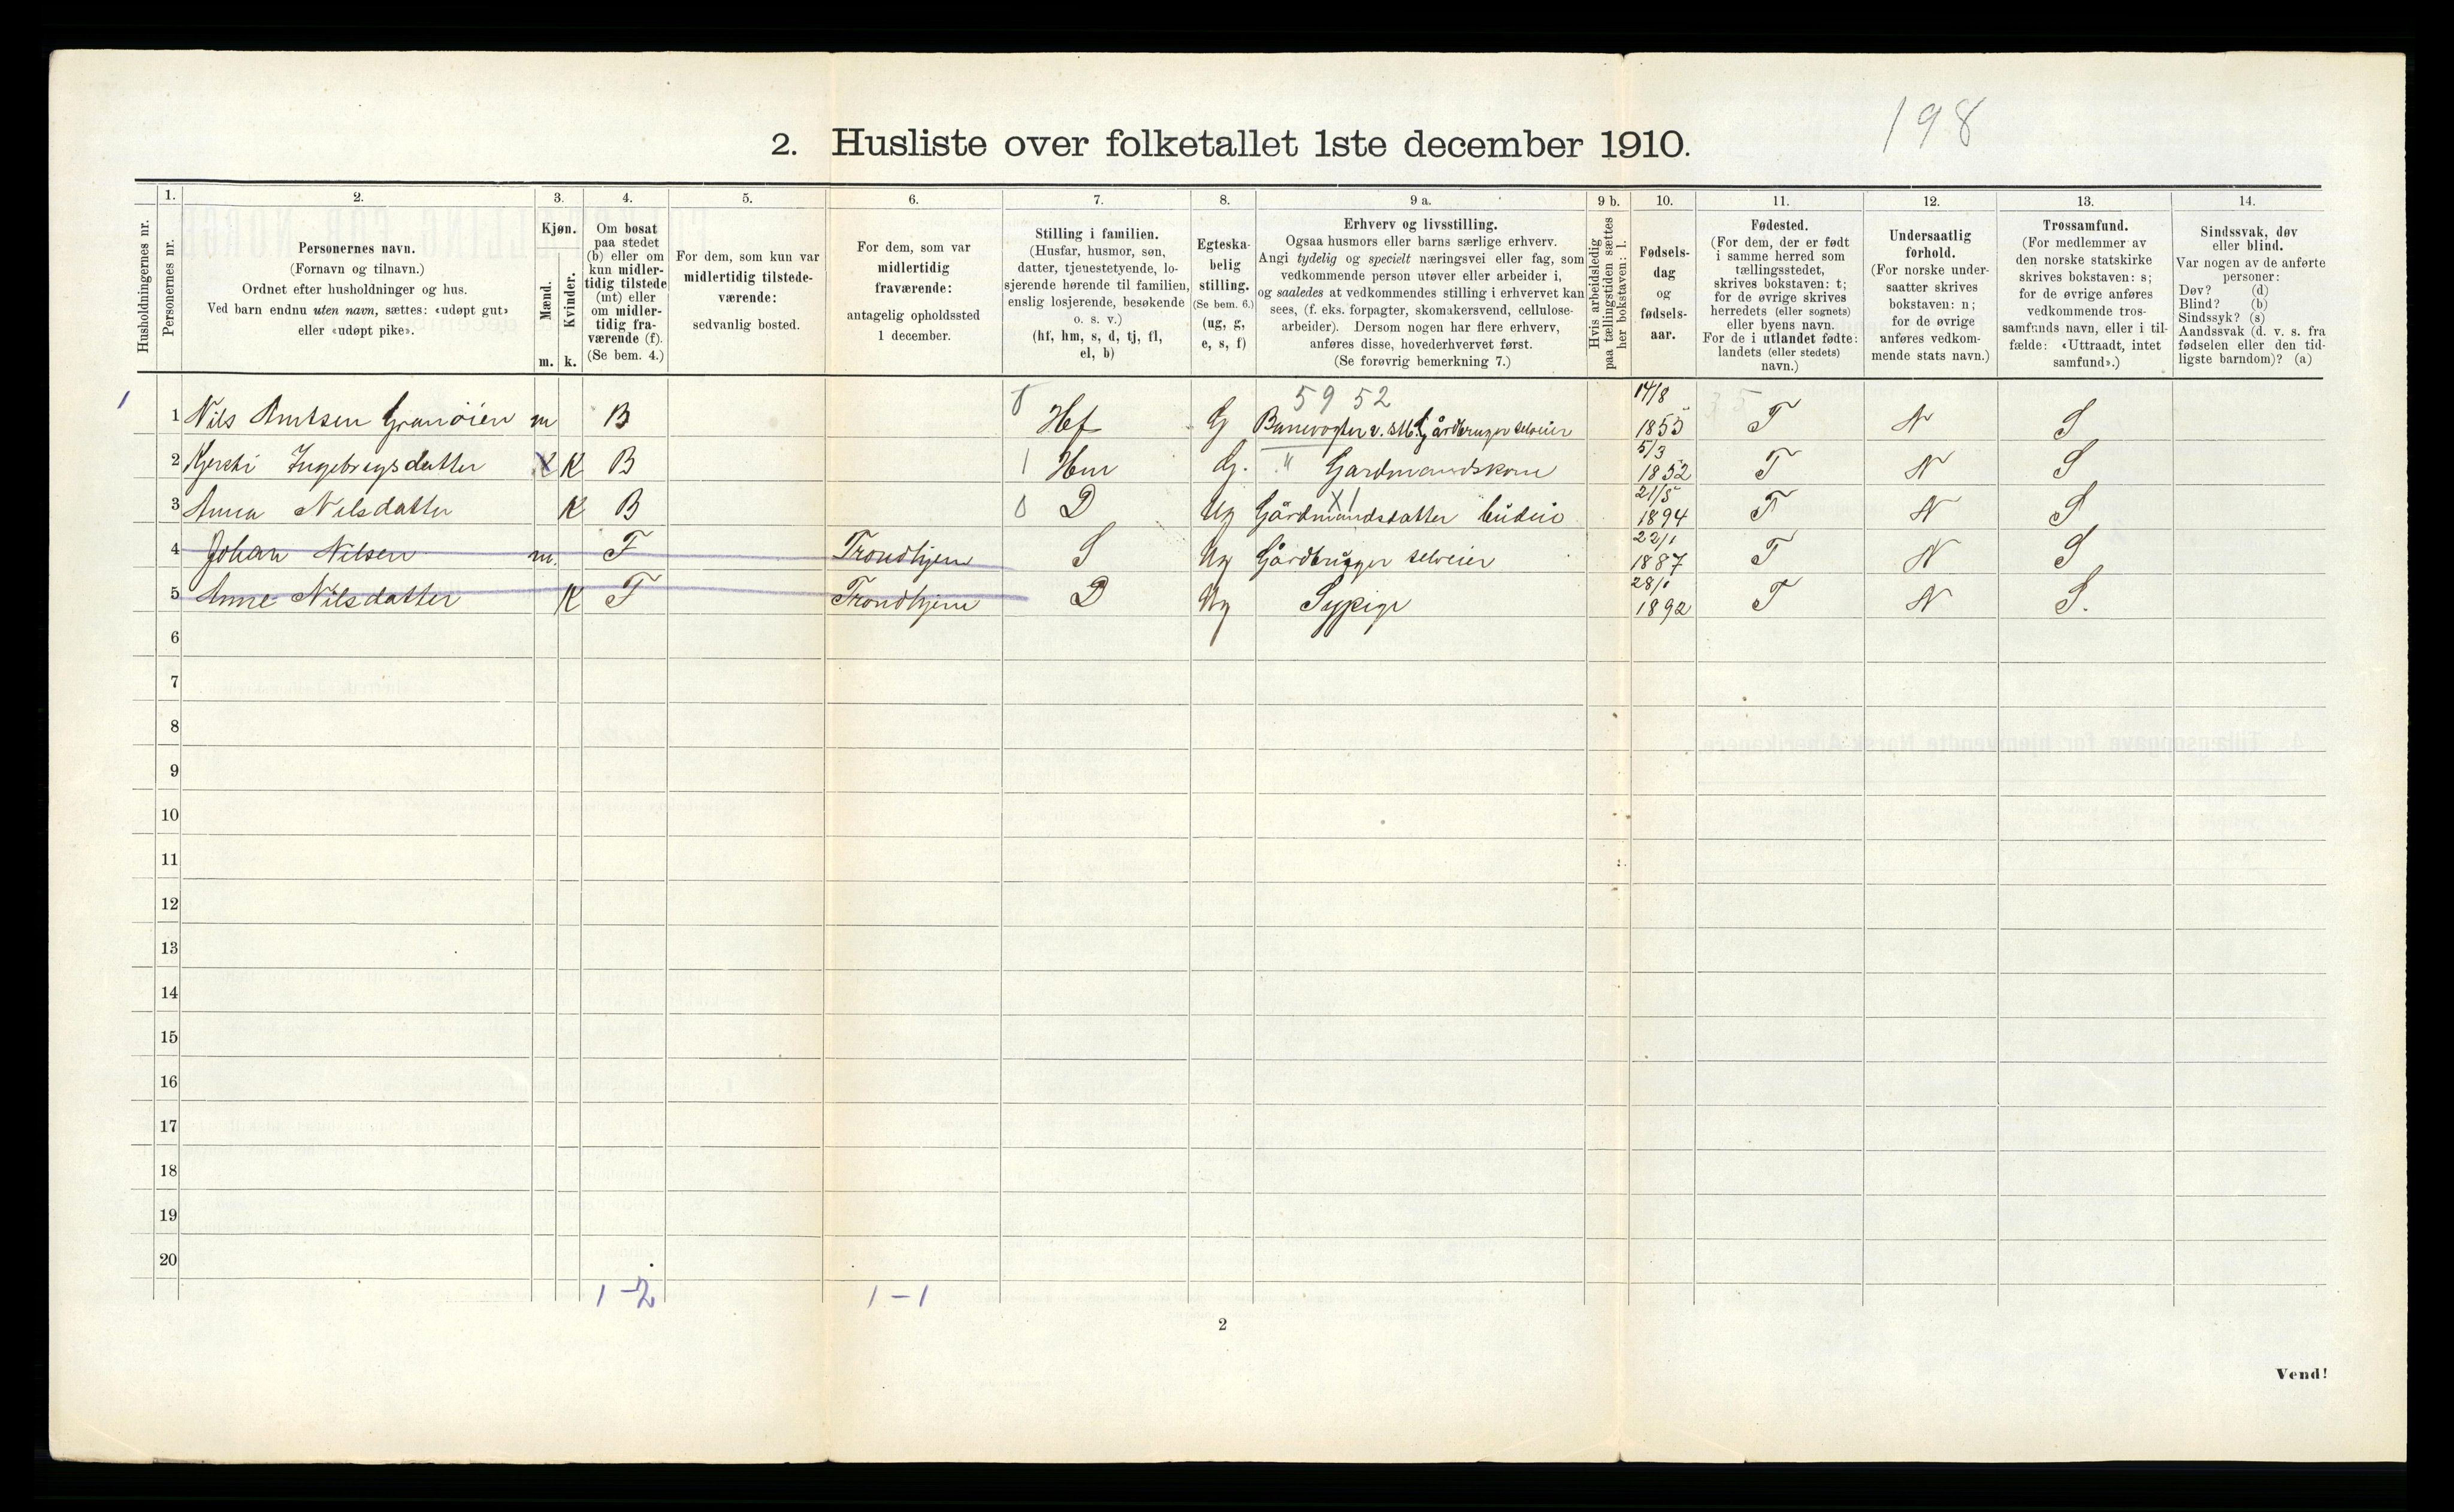 198
2. Husliste over folketallet 1ste december 1910.
Husholdningernes nr.
1.
Personernes nr.
2.
Personernes navn.
(Fornavn og tilnavn.)
Ordnet efter husholdninger og hus.
Ved barn endnu uten navn, sættes: «udøpt gut»
eller «udøpt pike».
3.
Kjøn.
Mænd.
m.
Kvinder.
k.
4.
Om bosat
paa stedet
(b) eller om
kun midler-
tidig tilstede
(mt) eller
om midler-
tidig fra-
værende (f).
(Se bem. 4.)
5.
For dem, som kun var
midlertidig tilstede-
værende:
sedvanlig bosted.
6.
For dem, som var
midlertidig
fraværende:
antagelig opholdssted
1 december.
7.
Stilling i familien.
(Husfar, husmor, søn,
datter, tjenestetyende, lo-
sjerende hørende til familien,
enslig losjerende, besøkende
o. s. v.)
(hf, hm, s, d, tj, fl,
el, b)
8.
Egteska-
belig
stilling.
(Se bem. 6.)
(ug, g,
e, s, f)
9 a.
Erhverv og livsstilling.
Ogsaa husmors eller barns særlige erhverv.
Angi tydelig og specielt næringsvei eller fag, som
vedkommende person utøver eller arbeider i,
og saaledes at vedkommendes stilling i erhvervet kan
sees, (f. eks. forpagter, skomakersvend, cellulose-
arbeider). Dersom nogen har flere erhverv,
anføres disse, hovederhvervet først.
(Se forøvrig bemerkning 7.)
9 b.
Hvis arbeidsledig
paa tællingstiden sættes
her bokstaven: l.
10.
Fødsels-
dag
og
fødsels-
aar.
11.
Fødested.
(For dem, der er født
i samme herred som
tællingsstedet,
skrives bokstaven: t;
for de øvrige skrives
herredets (eller sognets)
eller byens navn.
For de i utlandet fødte:
landets (eller stedets)
navn.)
12.
Undersaatlig
forhold.
(For norske under-
saatter skrives
bokstaven: n;
for de øvrige
anføres vedkom-
mende stats navn.)
13.
Trossamfund.
(For medlemmer av
den norske statskirke
skrives bokstaven: s;
for de øvrige anføres
vedkommende tros-
samfunds navn, eller i til-
fælde: «Uttraadt, intet
samfund».)
14.
Sindssvak, døv
eller blind.
Var nogen av de anførte
personer:
Døv? (d)
Blind? (b)
Sindssyk? (s)
Aandssvak (d. v. s. fra
fødselen eller den tid-
ligste barndom)? (a)
5952 14/8
1 1 Nils Arntsen Granøien m B Hf G Banevogter v. Stb. Gårdbruger selveier 1855 T N S
5/3
2 Kjersti Ingebrigtsdatter K B 1 Hm G. " Gardmandskone 1852 T N S
21/5
3 Anna Nilsdatter K B 0 D Ug Gårdmandsdatter budeie 1894 T N S
22/1
4 Johan Nilsen m. F Trondhjem S Ug Gårdbruger selveier 1887 T N S
28/1
5 Anne Nilsdatter K F Trondhjem D Ug Sypige 1892 T N S.
6
7
8
9
10
11
12
13
14
15
16
17
18
19
20
1-2 1-1
2
Vend!